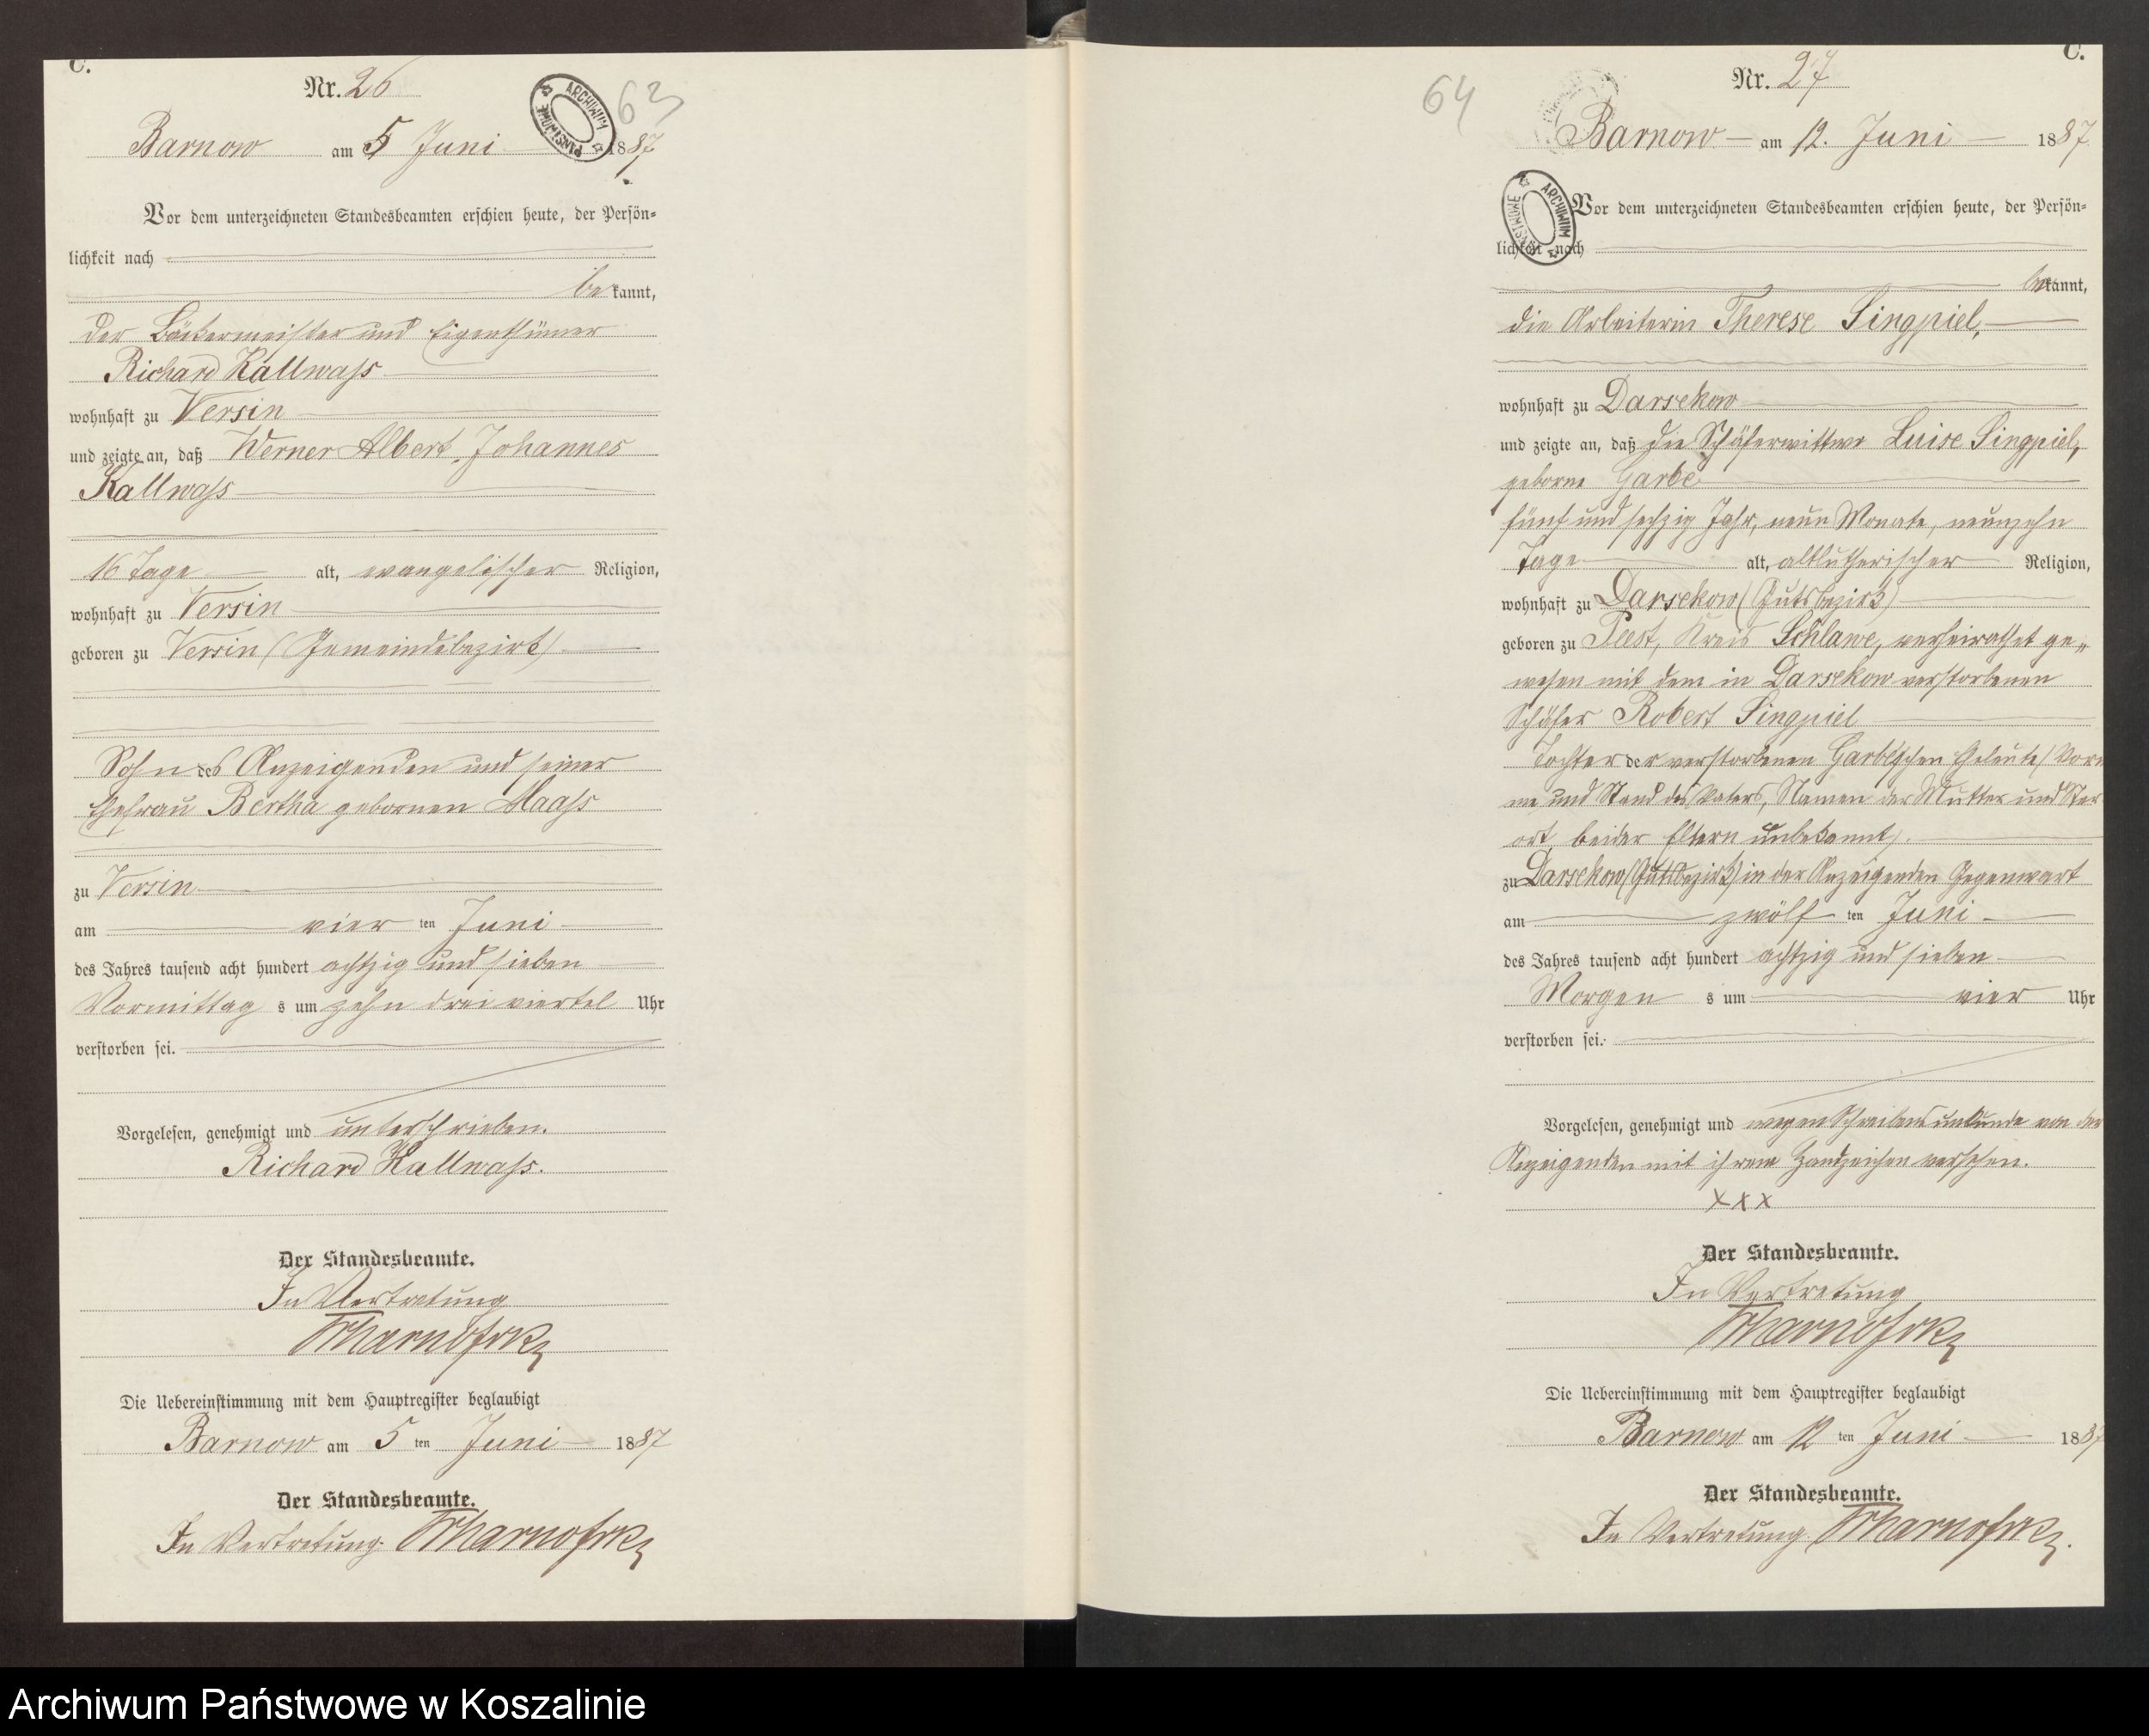 C.
Nr. 26
63
ARCHIWUM PAŃSTWOWE
Barnow am 5 Juni 1887
Vor dem unterzeichneten Standesbeamten erschien heute, der Persön=
lichkeit nach
bekannt,
der Bäckermeister und Eigenthümer
Richard Kallwass
wohnhaft zu Versin
und zeigte an, daß Werner Albert Johannes
Kallwass
16 Tage alt, evangelischer Religion,
wohnhaft zu Versin
geboren zu Versin (Gemeindebezirk)
Sohn des Anzeigenden und seiner
Ehefrau Bertha gebornen Maass
zu Versin
am vier ten Juni
des Jahres tausend acht hundert achtzig und sieben
Vormittag s um zehn drei viertel Uhr
verstorben sei.
Vorgelesen, genehmigt und unterschrieben.
Richard Kallwass.
Der Standesbeamte.
In Vertretung
Die Uebereinstimmung mit dem Hauptregister beglaubigt
Barnow am 5 ten Juni 1887
Der Standesbeamte.
In Vertretung
C.
Nr. 27
64
Barnow am 12. Juni 1887
ARCHIWUM PAŃSTWOWE
Vor dem unterzeichneten Standesbeamten erschien heute, der Persön=
lichkeit nach
bekannt,
die Arbeiterin Therese Singpiel,
wohnhaft zu Darsekow
und zeigte an, daß die Schäferwittwe Luise Singpiel,
geborne Garbe
fünf und sechzig Jahr, neun Monate, neunzehn
Tage alt, altlutherischer Religion,
wohnhaft zu Darsekow (Gutsbezirk)
geboren zu Peest, Kreis Schlawe, verheirathet ge„
wesen mit dem in Darsekow verstorbenen
Schäfer Robert Singpiel
Tochter der verstorbenen Garbe'schen Eheleute (Vorna
me und Stand des Vaters, Namen der Mutter und Ster
ort beider Eltern unbekannt).
zu Darsekow (Gutsbezirk) in der Anzeigenden Gegenwart
am zwölf ten Juni
des Jahres tausend acht hundert achtzig und sieben
Morgen s um vier Uhr
verstorben sei.
Vorgelesen, genehmigt und wegen Schreibensunkunde von der
Anzeigenden mit ihrem Handzeichen versehen.
x x x
Der Standesbeamte.
In Vertretung
Die Uebereinstimmung mit dem Hauptregister beglaubigt
Barnow am 12 ten Juni 1887
Der Standesbeamte.
In Vertretung
Archiwum Państwowe w Koszalinie